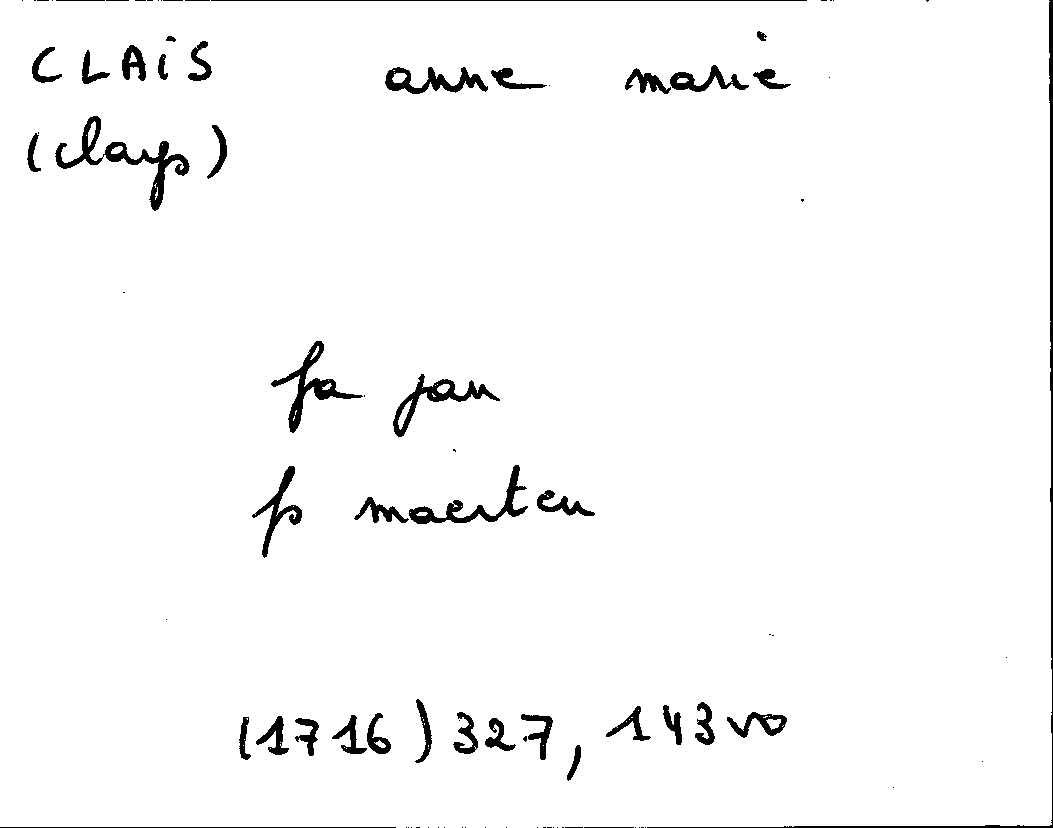 CLAiS anne marie
(clays)
fa jan
p maerten
(1716) 327, 143vo